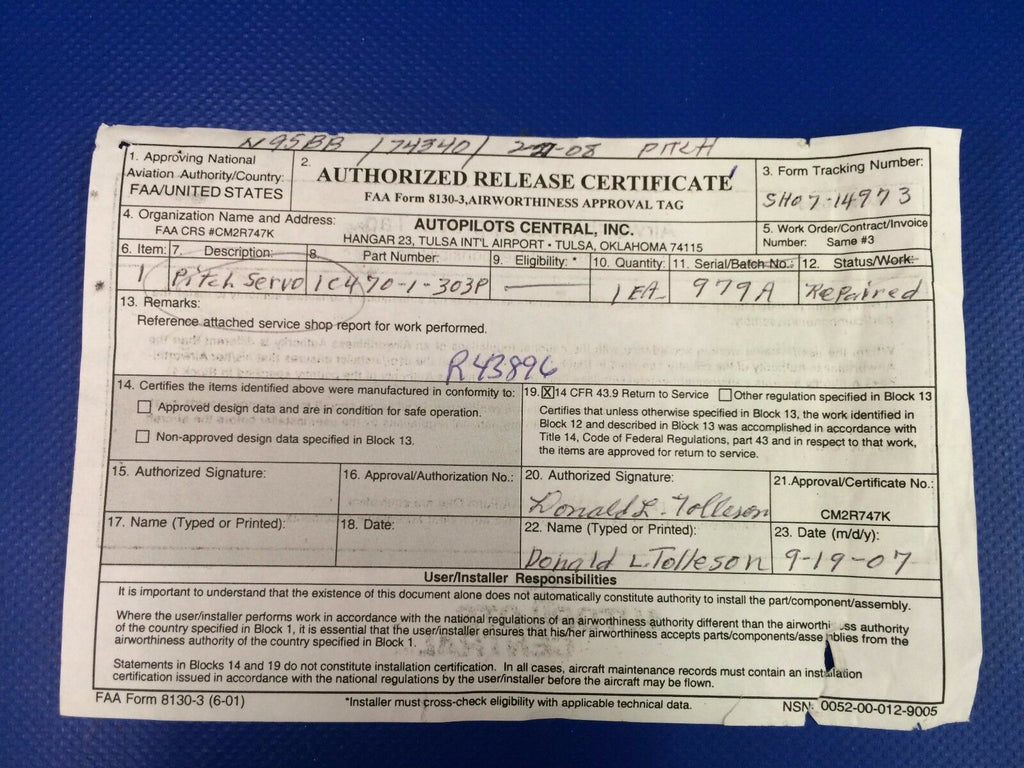 N95BB / 74340 / 2-27-08 PITCH
1. Approving National Aviation Authority/Country:
FAA/UNITED STATES
2.
AUTHORIZED RELEASE CERTIFICATE
FAA Form 8130-3, AIRWORTHINESS APPROVAL TAG
3. Form Tracking Number:
SH07-14973
4. Organization Name and Address:
FAA CRS #CM2R747K
AUTOPILOTS CENTRAL, INC.
HANGAR 23, TULSA INT'L AIRPORT • TULSA, OKLAHOMA 74115
5. Work Order/Contract/Invoice
Number: Same #3
6. Item: 7. Description: 8. Part Number: 9. Eligibility: * 10. Quantity: 11. Serial/Batch No.: 12. Status/Work:
1 Pitch Servo 1C470-1-303P — 1 EA 979A Repaired
13. Remarks:
Reference attached service shop report for work performed.
R43896
14. Certifies the items identified above were manufactured in conformity to:
Approved design data and are in condition for safe operation.
Non-approved design data specified in Block 13.
19. X 14 CFR 43.9 Return to Service Other regulation specified in Block 13
Certifies that unless otherwise specified in Block 13, the work identified in
Block 12 and described in Block 13 was accomplished in accordance with
Title 14, Code of Federal Regulations, part 43 and in respect to that work,
the items are approved for return to service.
15. Authorized Signature:
16. Approval/Authorization No.:
20. Authorized Signature:
Donald L. Tolleson
21. Approval/Certificate No.:
CM2R747K
17. Name (Typed or Printed):
18. Date:
22. Name (Typed or Printed):
Donald L. Tolleson
23. Date (m/d/y):
9-19-07
User/Installer Responsibilities
It is important to understand that the existence of this document alone does not automatically constitute authority to install the part/component/assembly.
Where the user/installer performs work in accordance with the national regulations of an airworthiness authority different than the airworthi ss authority
of the country specified in Block 1, it is essential that the user/installer ensures that his/her airworthiness accepts parts/components/asse blies from the
airworthiness authority of the country specified in Block 1.
Statements in Blocks 14 and 19 do not constitute installation certification. In all cases, aircraft maintenance records must contain an installation
certification issued in accordance with the national regulations by the user/installer before the aircraft may be flown.
FAA Form 8130-3 (6-01)
*Installer must cross-check eligibility with applicable technical data.
NSN: 0052-00-012-9005